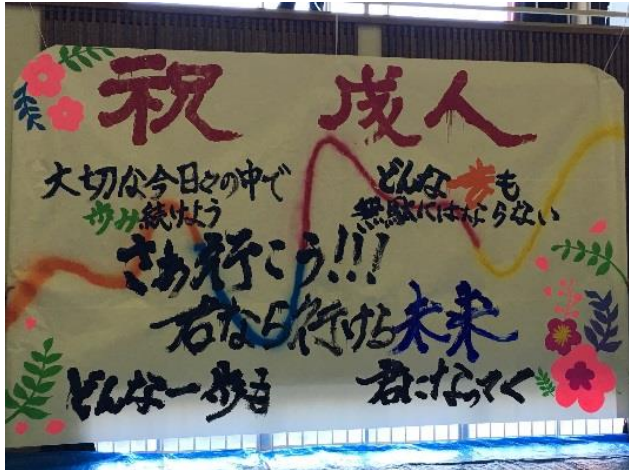 祝 成人
大切な今日々の中で
歩み続けよう
どんな一歩も
無駄にはならない
さあ行こう!!!
君なら行ける未来
どんな一歩も
君になってく